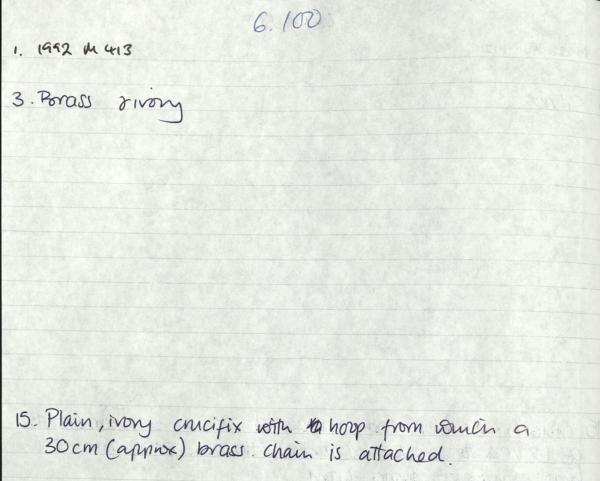 6.100
1. 1992 M 413
3. Brass & ivory
15. Plain, ivory crucifix with a hoop from which a
30cm (approx) brass chain is attached.